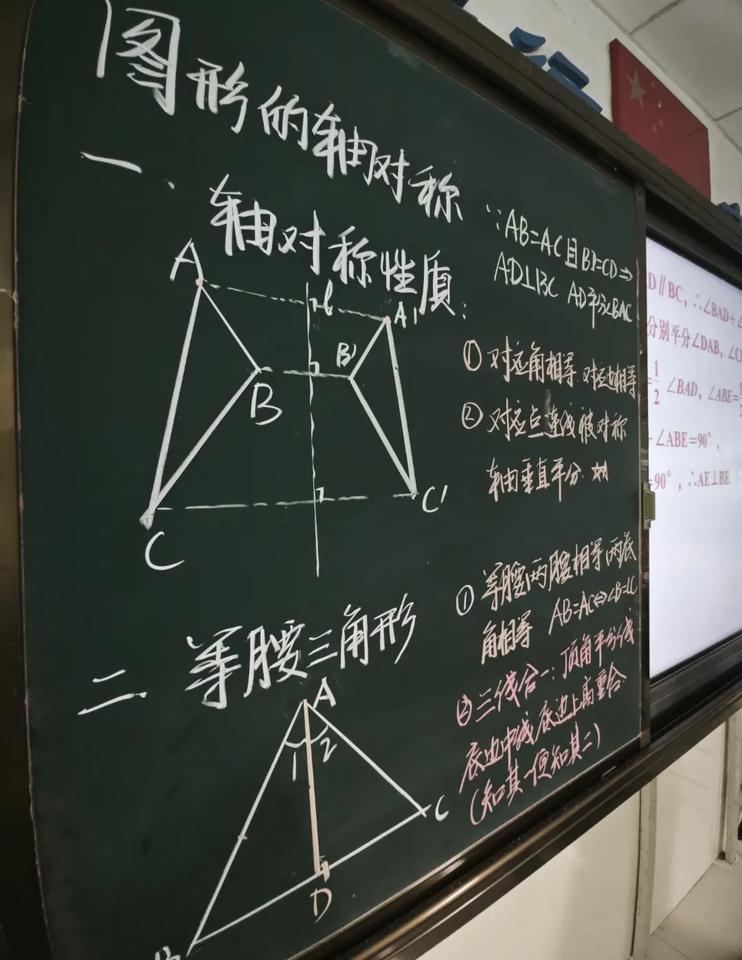 图形的轴对称
一. 轴对称性质:
A
B
C
l
A'
B'
C'
∵AB=AC且BD=CD⇒
AD⊥BC AD平分∠BAC
① 对应角相等 对应边相等
② 对应点连线被对称
轴垂直平分
二. 等腰三角形
A
1 2
B
C
D
① 等腰两腰相等两底
角相等 AB=AC⇔∠B=∠C
② 三线合一:顶角平分线
底边中线 底边上高重合
(知其一便知其二)
D∥BC,∴∠BAD+∠
分别平分∠DAB,∠C
=1/2 ∠BAD,∠ABE=
∠ABE=90°,
=90°,∴AE⊥BE